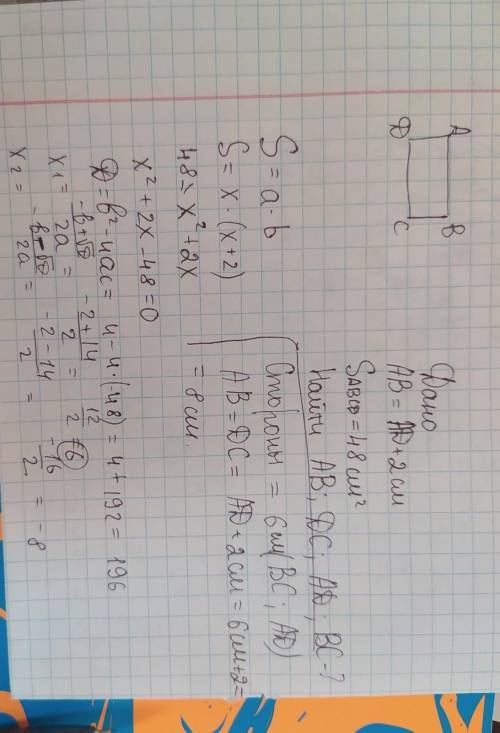 A B
D C
Дано
AB = AD + 2 см
SABCD = 48 см²
Найти AB; DC; AD; BC - ?
S = a · b
S = x · (x + 2)
48 = x² + 2x
x² + 2x - 48 = 0
D = b² - 4ac = 4 - 4 · (48) = 4 + 192 = 196
x1 = -b+√D / 2a = -2+14 / 2 = 12 / 2 = 6
x2 = -b-√D / 2a = -2-14 / 2 = -16 / 2 = -8
Стороны = 6 см (BC; AD)
AB = DC = AD + 2 см = 6 см + 2 =
= 8 см.